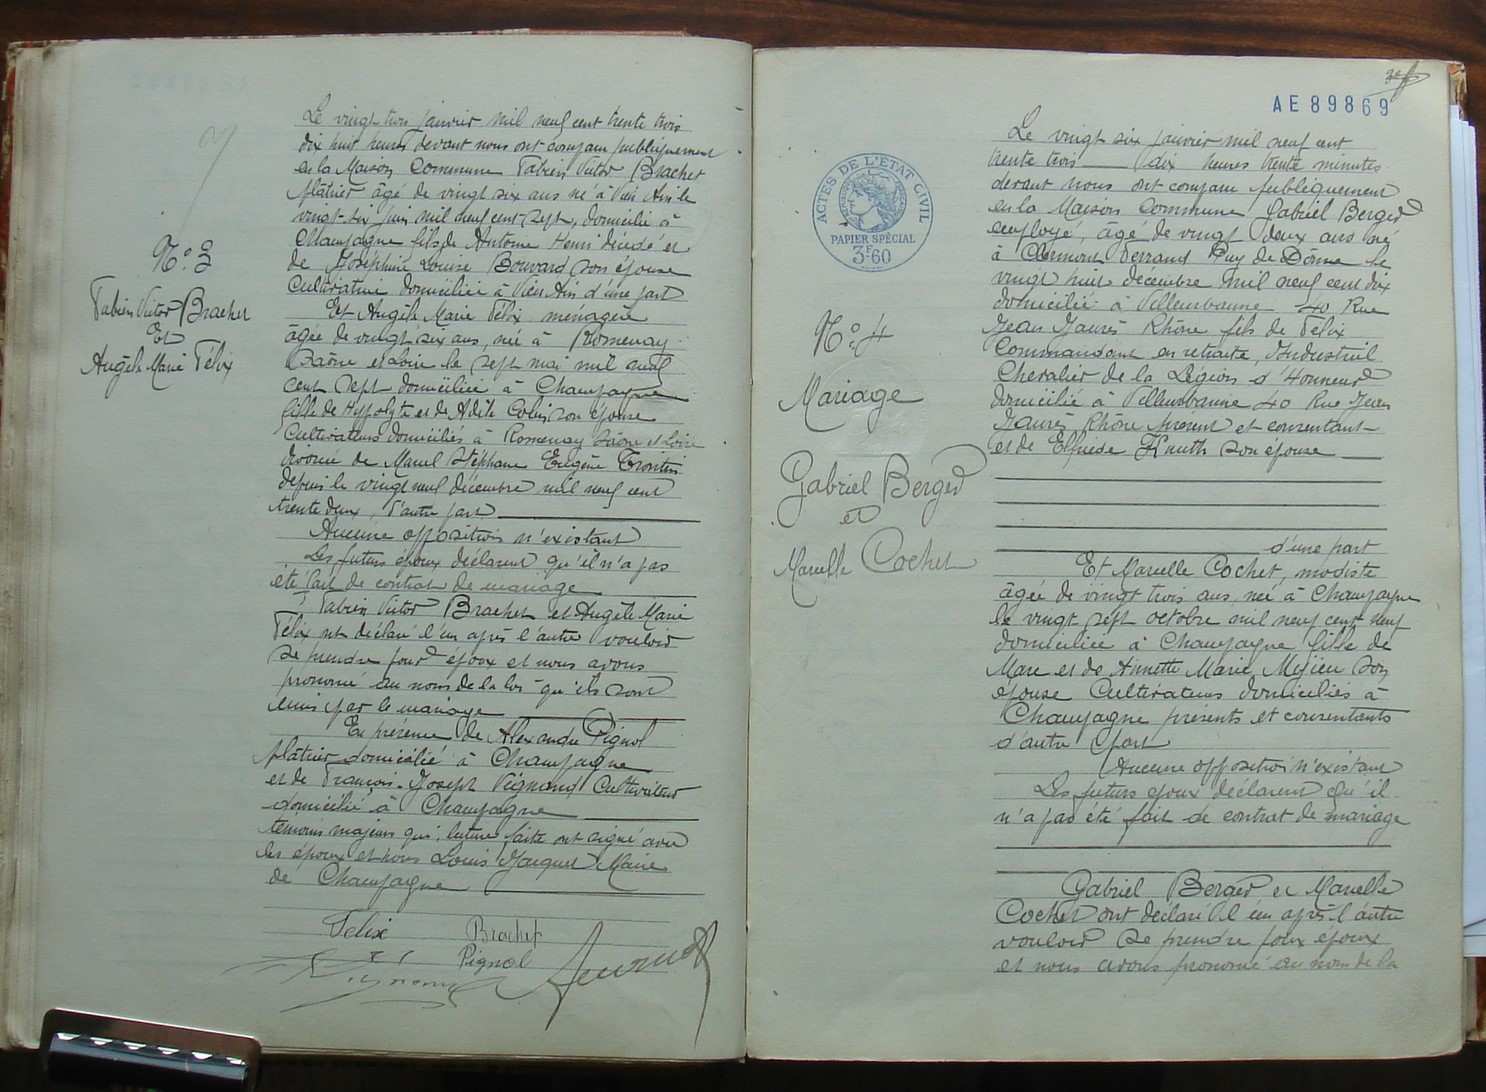 N° 3
Fabien Victor Brachet
Et
Angèle Marie Félix
Le vingt trois janvier mil neuf cent trente trois
dix huit heures devant nous ont comparu publiquement
en la Maison Commune Fabien Victor Brachet
plâtrier âgé de vingt six ans né à Vieu Ain le
vingt-six juin mil neuf cent sept, domicilié à
Champagne fils de Antoine Henri décédé et
de Joséphine Louise Bouvard son épouse
Cultivatrice domiciliée à Vieu Ain d'une part
Et Angèle Marie Félix ménagère
âgée de vingt six ans, née à Romenay
Saône et Loire le sept mai mil neuf
cent sept domiciliée à Champagne
fille de Hypolyte et de Adèle Colin son épouse
Cultivateurs domiciliés à Romenay Saône et Loire
divorcée de Marcel Stéphane Eugène
depuis le vingt neuf décembre mil neuf cent
trente deux, d'autre part
Aucune opposition n'existant
Les futurs époux déclarent qu'il n'a pas
été fait de contrat de mariage
Fabien Victor Brachet et Angèle Marie
Félix ont déclaré l'un après l'autre vouloir
se prendre pour époux et nous avons
prononcé au nom de la loi qu'ils sont
unis par le mariage
En présence de Alexandre Pignol
plâtrier domicilié à Champagne
et de François-Joseph Vignand Cultivateur
domicilié à Champagne
témoins majeurs qui, lecture faite ont signé avec
les époux et nous Louis Jacquet Maire
de Champagne
Felix Brachet
Pignol
AE 89869
ACTES DE L'ETAT CIVIL
PAPIER SPÉCIAL
3F60
N° 4
Mariage
Gabriel Berger
et
Marcelle Cochet
Le vingt six janvier mil neuf cent
trente trois dix heures trente minutes
devant nous ont comparu publiquement
en la Maison Commune Gabriel Berger
employé, âgé de vingt deux ans né
à Clermont Ferrand Puy de Dôme le
vingt huit décembre mil neuf cent dix
domicilié à Villeurbanne 40 Rue
Jean Jaurès Rhône fils de Félix
Commandant en retraite, Industriel
Chevalier de la Légion d'Honneur
domicilié à Villeurbanne 40 Rue Jean
Jaurès Rhône présent et consentant
et de Elfride Knuth son épouse
d'une part
Et Marcelle Cochet, modiste
âgée de vingt trois ans née à Champagne
le vingt sept octobre mil neuf cent neuf
domiciliée à Champagne fille de
Marc et de Annette Marie son
épouse Cultivateurs domiciliés à
Champagne présents et consentants
d'autre part
Aucune opposition n'existant
Les futurs époux déclarent qu'il
n'a pas été fait de contrat de mariage
Gabriel Berger et Marcelle
Cochet ont déclaré l'un après l'autre
vouloir se prendre pour époux
et nous avons prononcé au nom de la